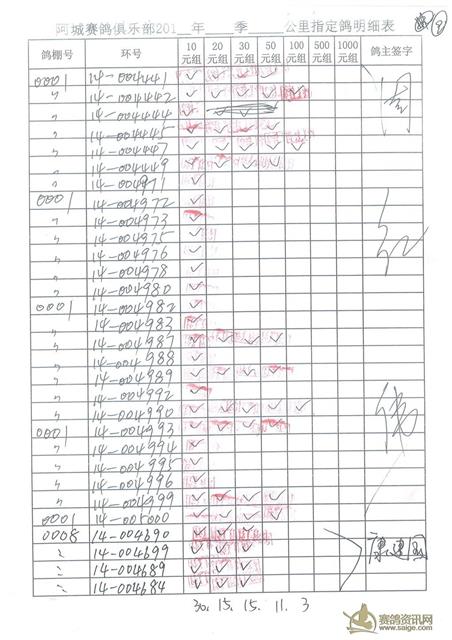 阿城赛鸽俱乐部201__年____季____公里指定鸽明细表
鸽棚号 环号 10元组 20元组 30元组 50元组 100元组 500元组 1000元组 鸽主签字
0001 14-004441 ✓ ✓ ✓ ✓
〃 14-004442 ✓ ✓ ✓ ✓ ✓
〃 14-004444 ✓
〃 14-004445 ✓ ✓ ✓ ✓
〃 14-004447 ✓ ✓ ✓ ✓ ✓
〃 14-004449 ✓ ✓ ✓ ✓
〃 14-004971 ✓
0001 14-004972 ✓
〃 14-004973 ✓
〃 14-004975 ✓
〃 14-004976 ✓
〃 14-004978 ✓
〃 14-004980 ✓
0001 14-004982 ✓
〃 14-004983 ✓
〃 14-004987 ✓ ✓ ✓ ✓
〃 14-004988 ✓
〃 14-004989 ✓ ✓ ✓ ✓
〃 14-004992 ✓
〃 14-004990 ✓ ✓ ✓ ✓ ✓
0001 14-004993 ✓ ✓ ✓ ✓
〃 14-004994 ✓
〃 14-004995 ✓
〃 14-004996 ✓
〃 14-004999 ✓ ✓ ✓ ✓
0001 14-005000 ✓ ✓ ✓ ✓
0008 14-004690 ✓ ✓ ✓
〃 14-004699 ✓ ✓ ✓
〃 14-004689 ✓ ✓ ✓
〃 14-004684 ✓ ✓ ✓
30. 15. 15. 11. 3
赛鸽资讯网
www.saige.com